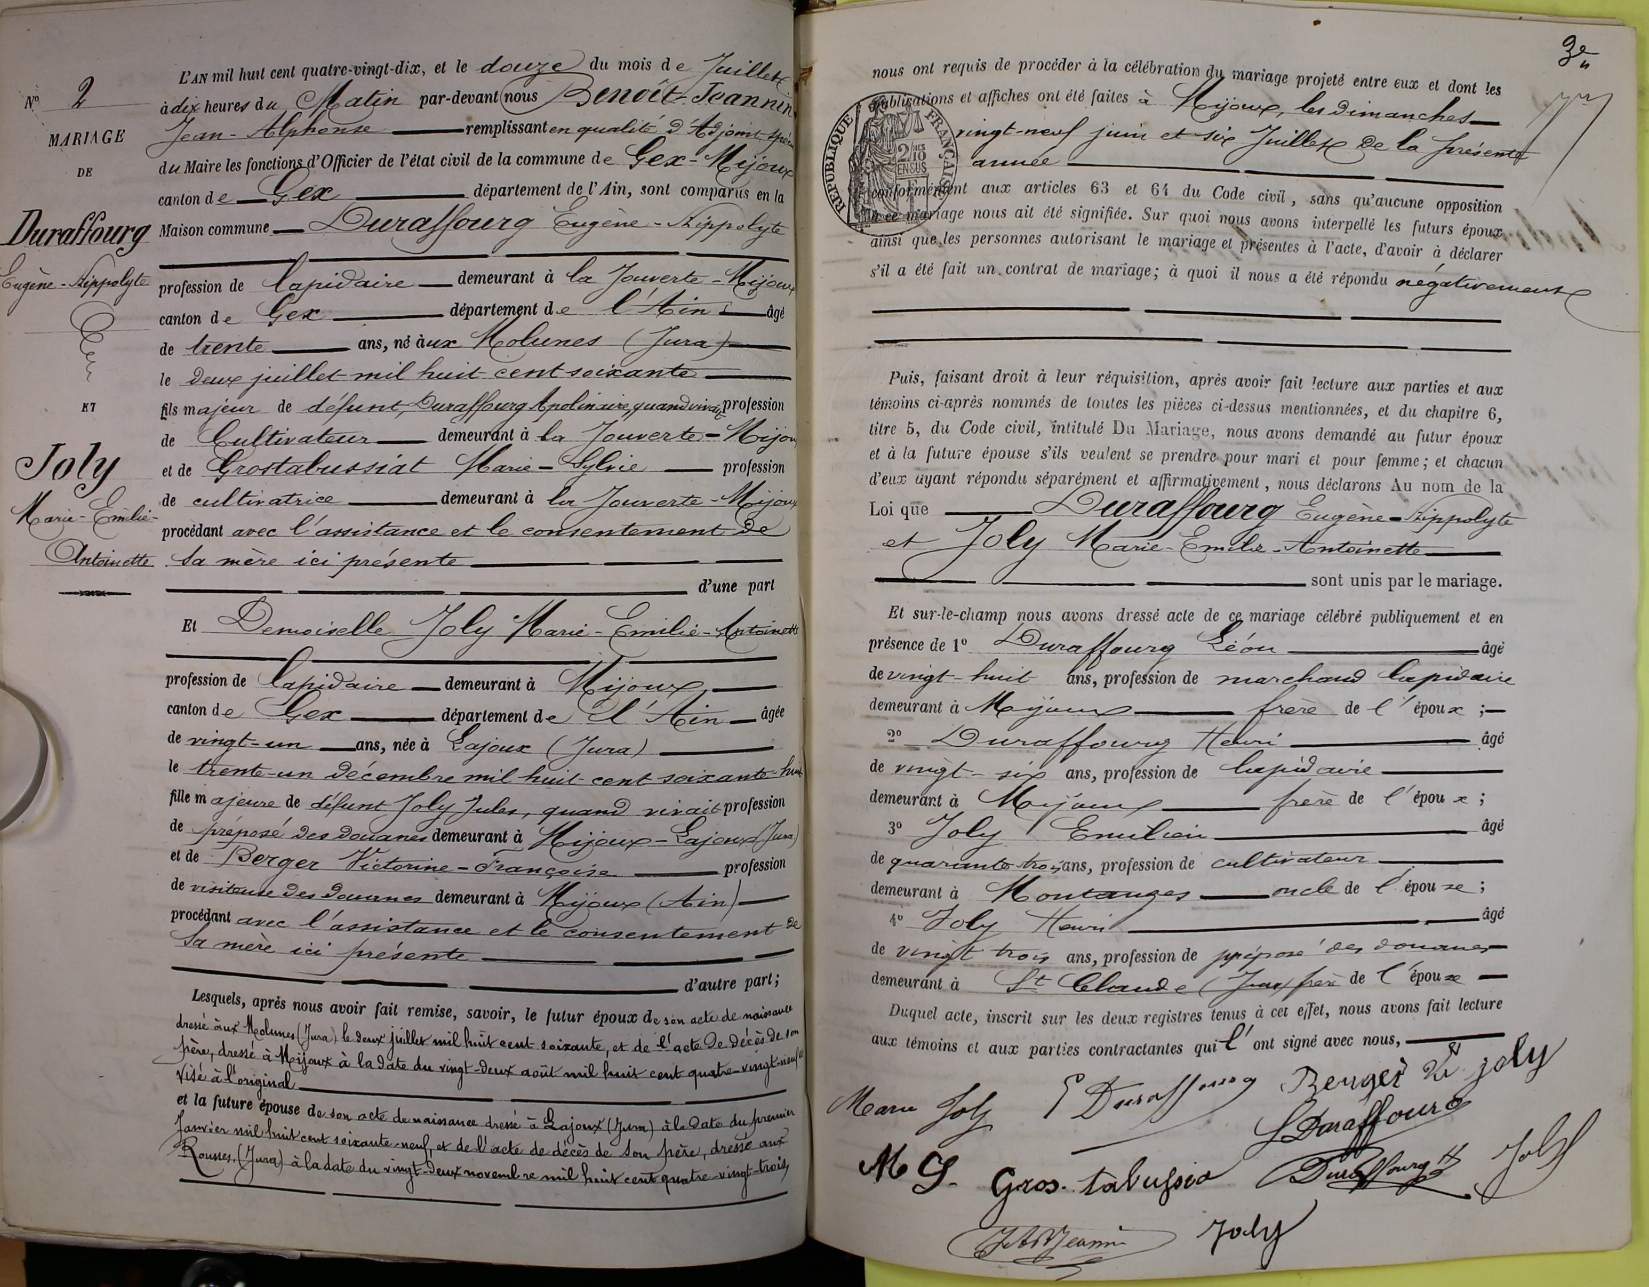 Nº 2
MARIAGE
DE
Duraffourg
Eugène-Hippolyte
ET
Joly
Marie-Emilie-
Antoinette
L'AN mil huit cent quatre-vingt-dix, et le douze du mois de Juillet
à dix heures du Matin par-devant nous Benoît-Jeannin
Jean-Alphonse remplissant en qualité d'Adjoint-spé
du Maire les fonctions d'Officier de l'état civil de la commune de Gex-Mijoux
canton de Gex département de l'Ain, sont comparus en la
Maison commune Duraffourg Eugène-Hippolyte
profession de lapidaire demeurant à la Jouverte-Mijoux
canton de Gex département de l'Ain âgé
de trente ans, né aux Molunes (Jura)
le deux juillet mil huit cent soixante
fils majeur de défunt Duraffourg Apolinaire, quand vivait profession
de Cultivateur demeurant à la Jouverte-Mijoux
et de Grostabussiat Marie-Sylvie profession
de cultivatrice demeurant à la Jouverte-Mijoux
procédant avec l'assistance et le consentement de
sa mère ici présente
d'une part
Et Demoiselle Joly Marie-Emilie-Antoinette
profession de lapidaire demeurant à Mijoux
canton de Gex département de l'Ain âgée
de vingt-un ans, née à Lajoux (Jura)
le trente-un décembre mil huit cent soixante-huit
fille majeure de défunt Joly Jules, quand vivait profession
de préposé des douanes demeurant à Mijoux-Lajoux (Jura)
et de Berger Victorine-Françoise profession
de visiteuse des douanes demeurant à Mijoux (Ain)
procédant avec l'assistance et le consentement de
sa mère ici présente
d'autre part;
Lesquels, après nous avoir fait remise, savoir, le futur époux de son acte de naissance
dressé aux Molunes (Jura) le deux juillet mil huit cent soixante, et de l'acte de décès de son
père, dressé à Mijoux à la date du vingt-deux août mil huit cent quatre-vingt-neuf et
visé à l'original
et la future épouse de son acte de naissance dressé à Lajoux (Jura) à la date du premier
Janvier mil huit cent soixante-neuf, et de l'acte de décès de son père, dressé aux
Rousses (Jura) à la date du vingt-deux novembre mil huit cent quatre-vingt-trois,
3e
nous ont requis de procéder à la célébration du mariage projeté entre eux et dont les
publications et affiches ont été faites à Mijoux, les dimanches
vingt-neuf juin et six Juillet de la présente
année
RÉPUBLIQUE FRANÇAISE
2/10 EN SUS
conformément aux articles 63 et 64 du Code civil, sans qu'aucune opposition
à ce mariage nous ait été signifiée. Sur quoi nous avons interpellé les futurs époux
ainsi que les personnes autorisant le mariage et présentes à l'acte, d'avoir à déclarer
s'il a été fait un contrat de mariage; à quoi il nous a été répondu négativement
Puis, faisant droit à leur réquisition, après avoir fait lecture aux parties et aux
témoins ci-après nommés de toutes les pièces ci-dessus mentionnées, et du chapitre 6,
titre 5, du Code civil, intitulé Du Mariage, nous avons demandé au futur époux
et à la future épouse s'ils veulent se prendre pour mari et pour femme; et chacun
d'eux ayant répondu séparément et affirmativement, nous déclarons Au nom de la
Loi que Duraffourg Eugène-Hippolyte
et Joly Marie-Emilie-Antoinette
sont unis par le mariage.
Et sur-le-champ nous avons dressé acte de ce mariage célébré publiquement et en
présence de 1º Duraffourg Léon âgé
de vingt-huit ans, profession de marchand lapidaire
demeurant à Mijoux frère de l'époux;
2º Duraffourg Henri âgé
de vingt-six ans, profession de lapidaire
demeurant à Mijoux frère de l'époux;
3º Joly Emilien âgé
de quarante-trois ans, profession de cultivateur
demeurant à Montanges oncle de l'épouse;
4º Joly Henri âgé
de vingt trois ans, profession de préposé des douanes
demeurant à St Claude (Jura) frère de l'épouse
Duquel acte, inscrit sur les deux registres tenus à cet effet, nous avons fait lecture
aux témoins et aux parties contractantes qui l'ont signé avec nous,
Marie Joly E Duraffourg Berger Ve joly
L Duraffourg
M G. Gros-tabussia Duraffourg H Joly
JA Bt Jeannin Joly